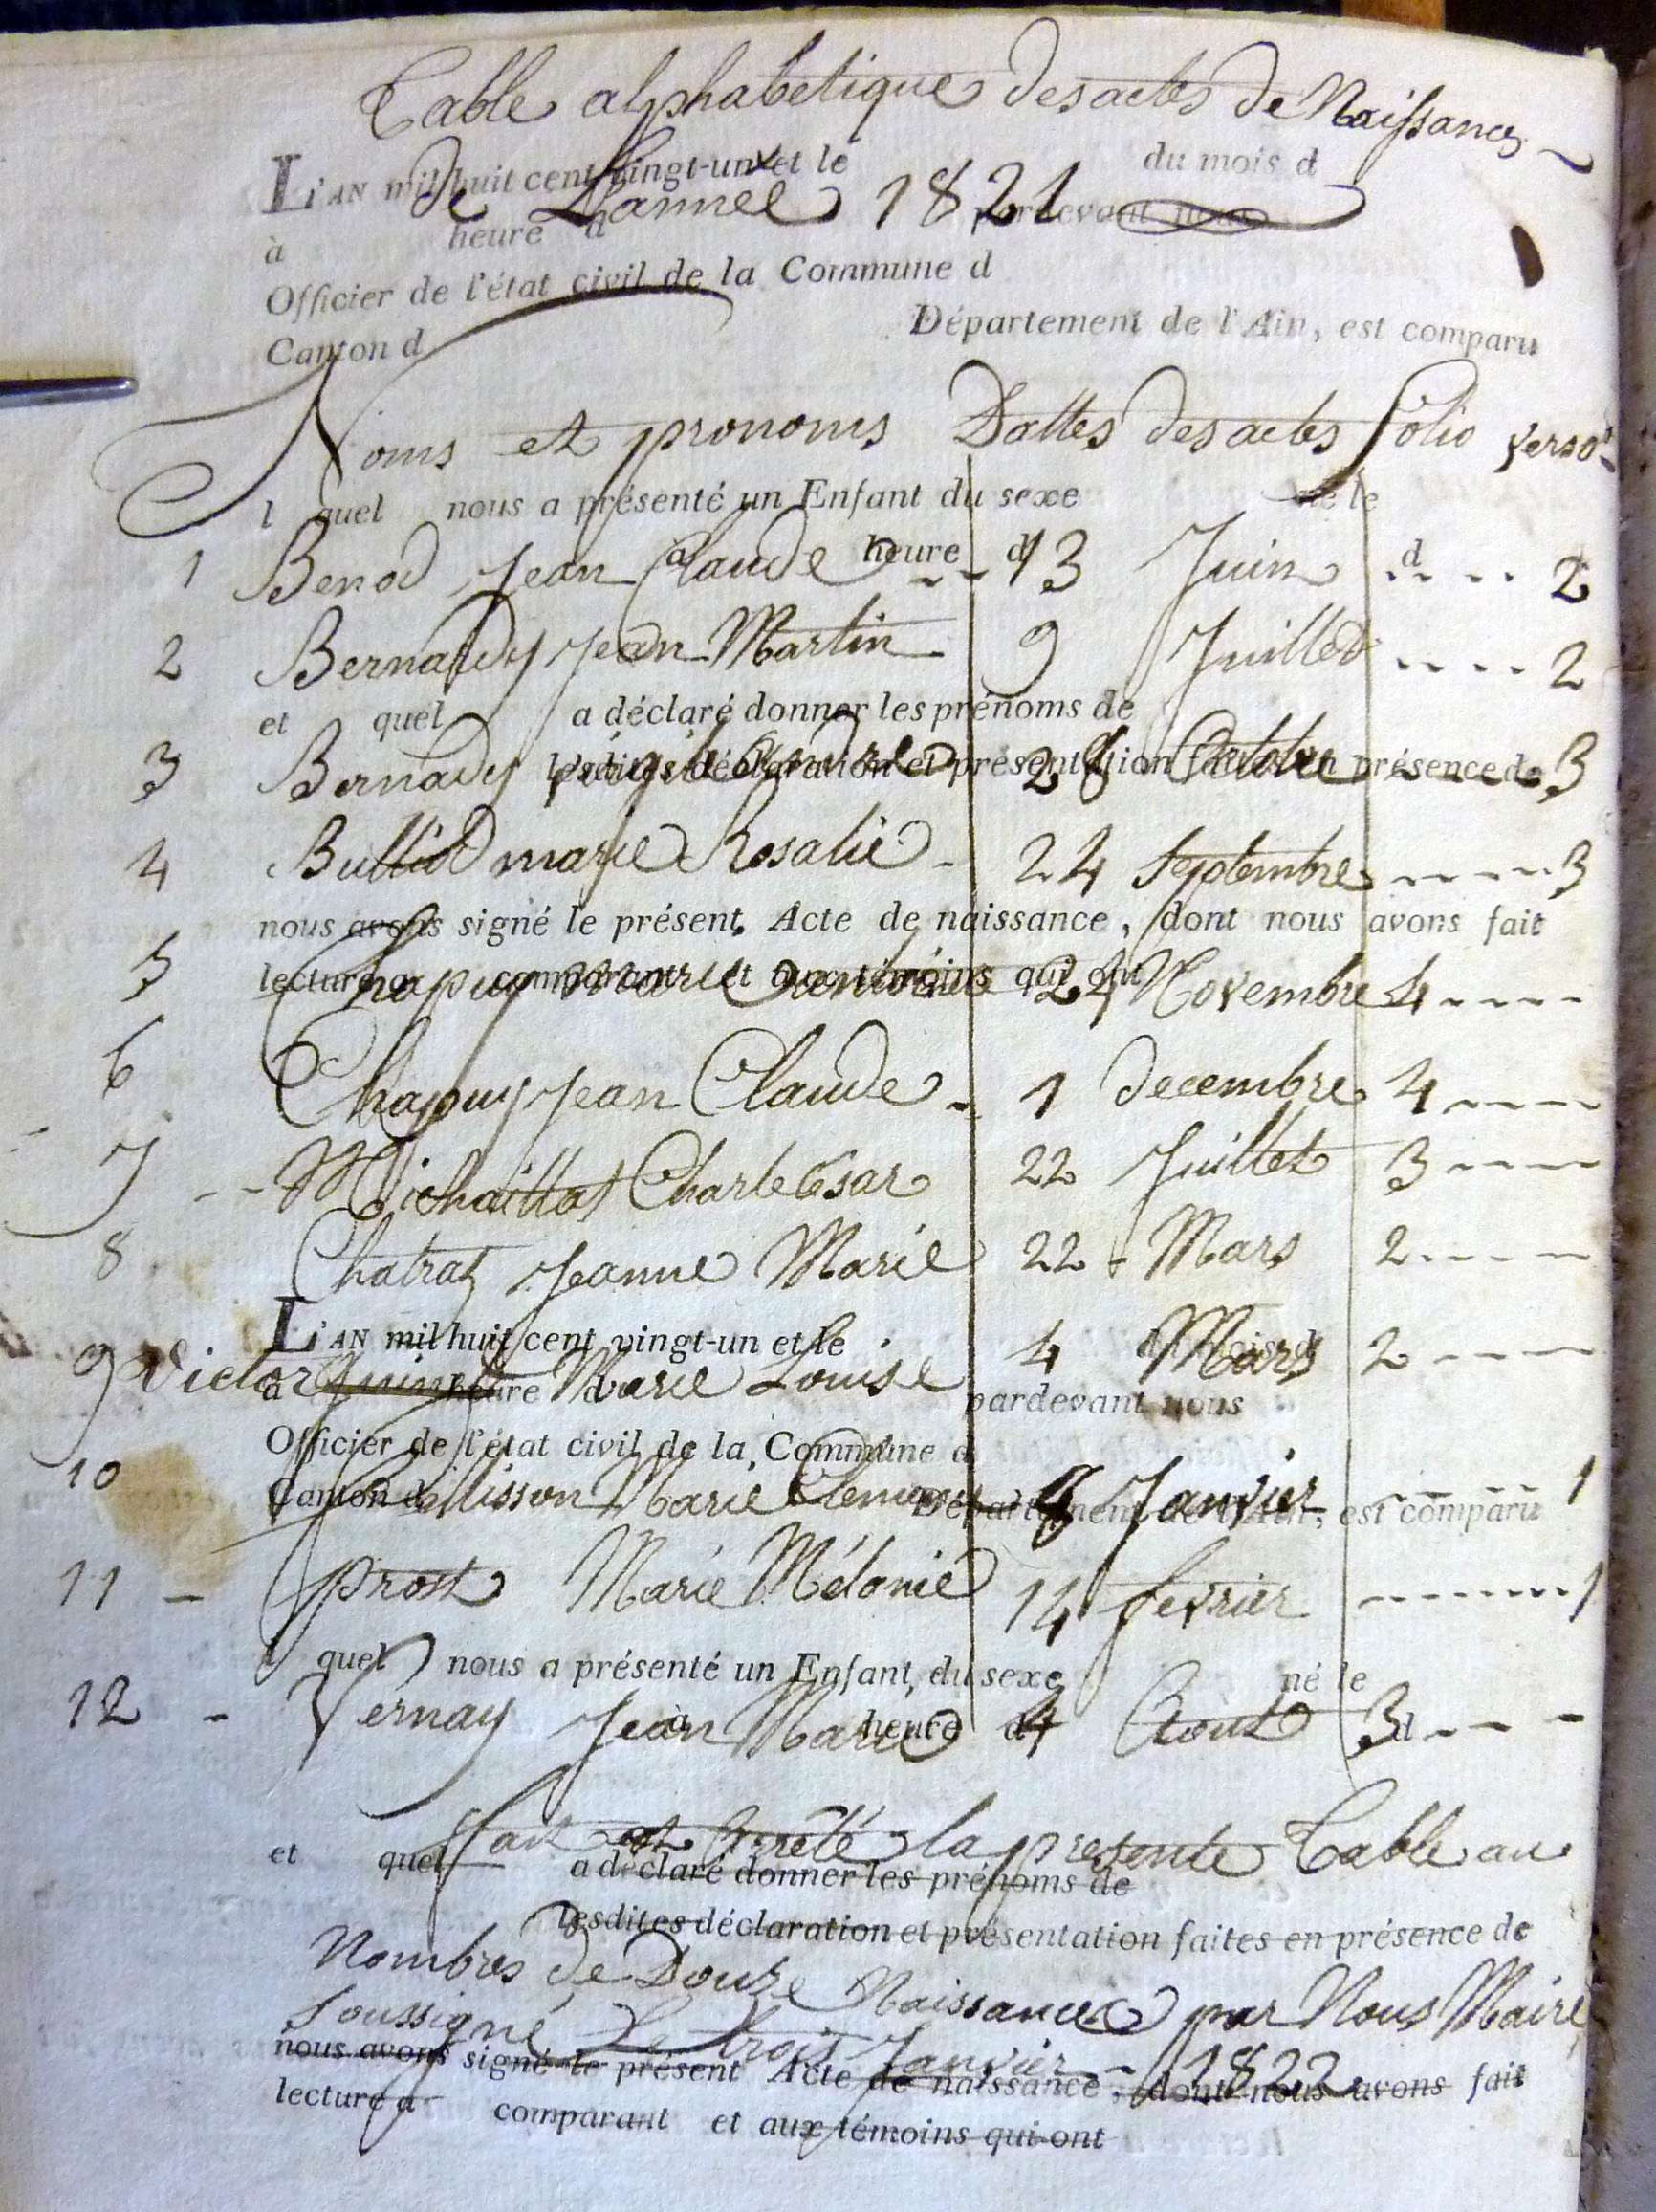 Table alphabetique des actes de Naissances
L'AN mil huit cent vingt-un et le du mois d
de Lannee 1821
à heure d pardevant nous
Officier de l'état civil de la Commune d
Canton d Département de l'Ain, est comparu
Noms et pronoms Dattes des actes folio verso
l quel nous a présenté un Enfant du sexe né le
à heure d d
1 Benod Jean Claude 13 Juin 2
2 Bernardy Jean Martin 9 Juillet 2
et quel a déclaré donner les prénoms de
lesdites déclaration et présentation faites en présence de
3 Bernady 28 Octobre 3
4 Bulliod marie Rosalie 24 Septembre 3
nous avons signé le présent Acte de naissance, dont nous avons fait
lecture a comparant et aux témoins qui ont
5 Chapuy marie 24 Novembre 4
6 Chapuy Jean Claude 1 decembre 4
7 Michaillat Charle César 22 Juillet 3
8 Chatraz Jeanne Marie 22 Mars 2
L'AN mil huit cent vingt-un et le du mois d
9 Victor Marie Louise 4 Mars 2
à heure d pardevant nous
Officier de l'état civil de la Commune d
10 Marie 8 Janvier 1
Canton d Département de l'Ain, est comparu
11 prost Marie Mélanie 14 fevrier 1
l quel nous a présenté un Enfant du sexe né le
12 Vernay Jean Marie 4 Aout 3
à heure d d
fait et Arrêté la presente Table au
et quel a déclaré donner les prénoms de
lesdites déclaration et présentation faites en présence de
Nombres de Douze Naissances par Nous Maire
Soussigné Le trois Janvier 1822
nous avons signé le présent Acte de naissance, dont nous avons fait
lecture a comparant et aux témoins qui ont